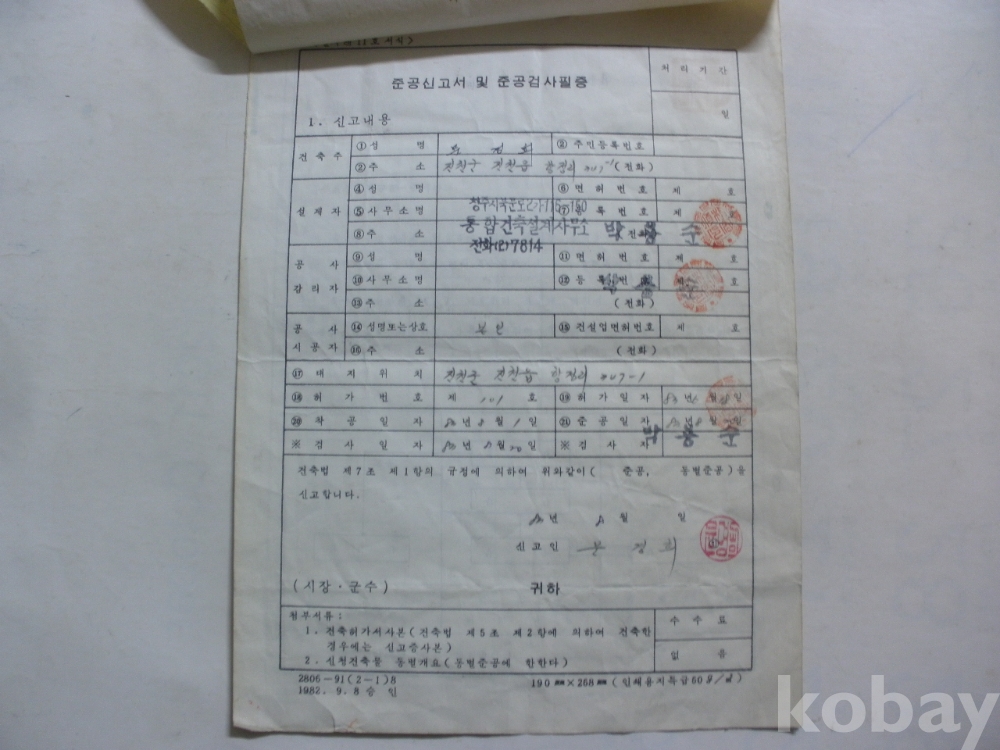 준공신고서 및 준공검사필증
처리기간
일
1. 신고내용
건축주 ①성 명 ② 주민등록번호
주 소 진천군 진천읍 (전화)
설계자 ④성 명 ⑥면허번호 제 호
청주시북문로2가116-150
⑤사무소명 ⑦등록번호 제
통합건축설계사무소 박용순
⑧주 소 (전화)
전화(2)7814
공사감리자 ⑨성 명 ⑪면허번호 제 호
⑩사무소명 ⑫등록번호 제
⑬주 소 (전화)
공사시공자 ⑭성명또는상호 본인 건설업면허번호 제 호
주 소 (전화)
⑰대지위치 진천군 진천읍
⑱허가번호 제 101 호 ⑲허가일자 년 월 일
⑳착공일자 년 8월 1일 준공일자 년 월 일
※검사일자 년 월 20일 ※검사자 박용순
건축법 제7조 제1항의 규정에 의하여 위와같이( 준공, 동별준공)을
신고합니다.
년 월 일
신고인
(시장·군수) 귀하
첨부서류:
수수료
1. 건축허가서사본(건축법 제5조 제2항에 의하여 건축한
경우에는 신고증사본)
없음
2. 신청건축물 동별개요(동별준공에 한한다)
2806-91(2-1)8
1982. 9. 8 승인
190㎜×268㎜(인쇄용지특급60g/㎡)
kobay